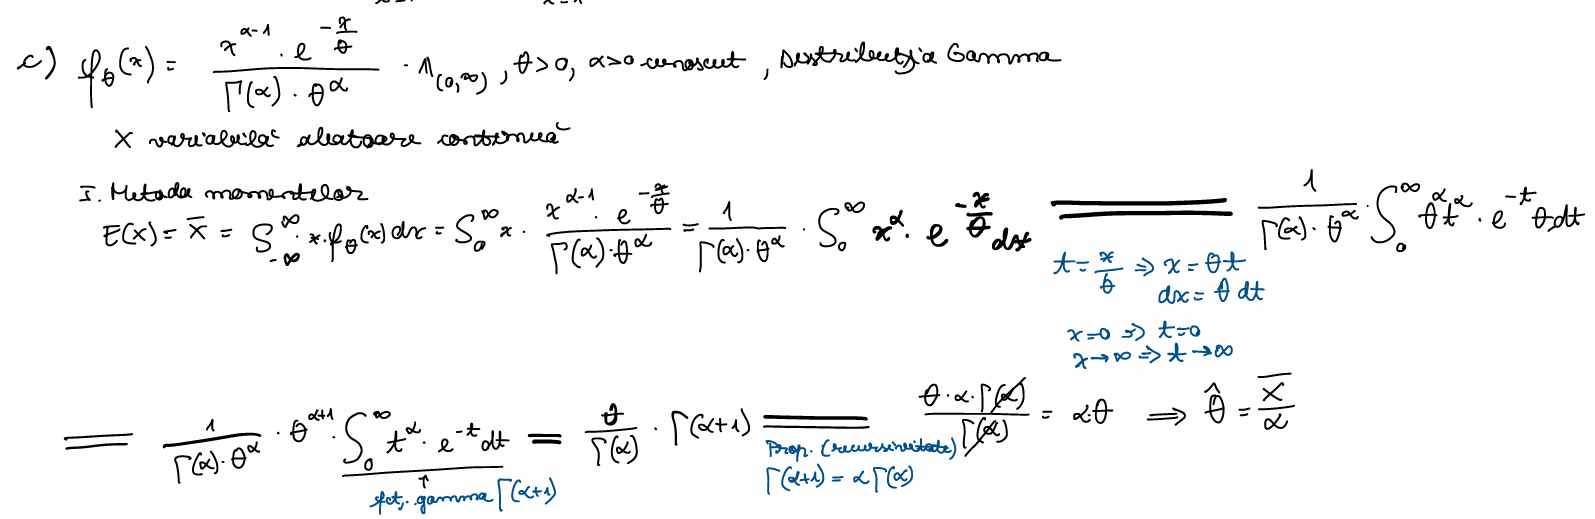 c) f_θ(x) = \frac{x^{α-1} · e^{-\frac{x}{θ}}}{Γ(α) · θ^α} · 𝟙_{(0,∞)}, θ>0, α>0 cunoscut, Distribuția Gamma
X variabilă aleatoare continuă
I. Metoda momentelor
E(X) = \overline{X} = ∫_{-∞}^{∞} x·f_θ(x) dx = ∫_0^∞ x · \frac{x^{α-1} · e^{-\frac{x}{θ}}}{Γ(α)·θ^α} = \frac{1}{Γ(α)·θ^α} · ∫_0^∞ x^α · e^{-\frac{x}{θ}} dx = \frac{1}{Γ(α)·θ^α} · ∫_0^∞ θ^α t^α · e^{-t} θ dt
t = \frac{x}{θ} ⇒ x = θt
dx = θ dt
x=0 ⇒ t=0
x→∞ ⇒ t→∞
= \frac{1}{Γ(α)·θ^α} · θ^{α+1} · ∫_0^∞ t^α · e^{-t} dt = \frac{θ}{Γ(α)} · Γ(α+1) = \frac{θ·α·Γ(α)}{Γ(α)} = α·θ ⇒ \hat{θ} = \frac{\overline{X}}{α}
↑
fct. gamma Γ(α+1)
Prop. (recursivitate)
Γ(α+1) = αΓ(α)